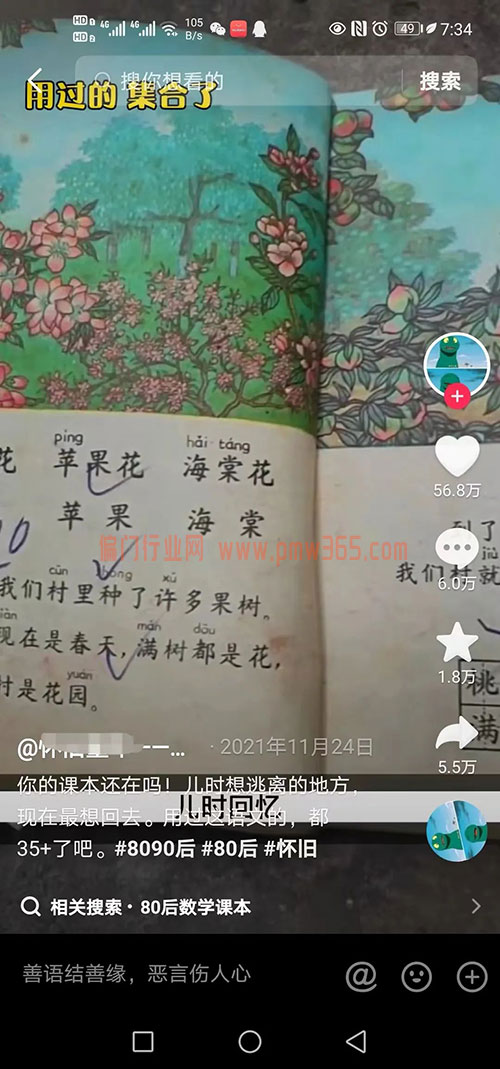 HD 1 4G 4G 105 B/s 49 7:34
HD 2
搜你想看的 搜索
用过的 集合了
píng hǎi táng
花 苹果花 海棠花
苹果 海棠
56.8万
偏门行业网 www.pmw365.com
到了
cūn zhòng xǔ jiù
我们村里种了许多果树。
我们村就
6.0万
mǎn dōu
现在是春天,满树都是花,
yuán
村是花园。
1.8万
桃
满
· 2021年11月24日
5.5万
你的课本还在吗!儿时想逃离的地方,
现在最想回去。用过这语文的,都
儿时回忆
35+了吧。#8090后 #80后 #怀旧
相关搜索· 80后数学课本
善语结善缘,恶言伤人心